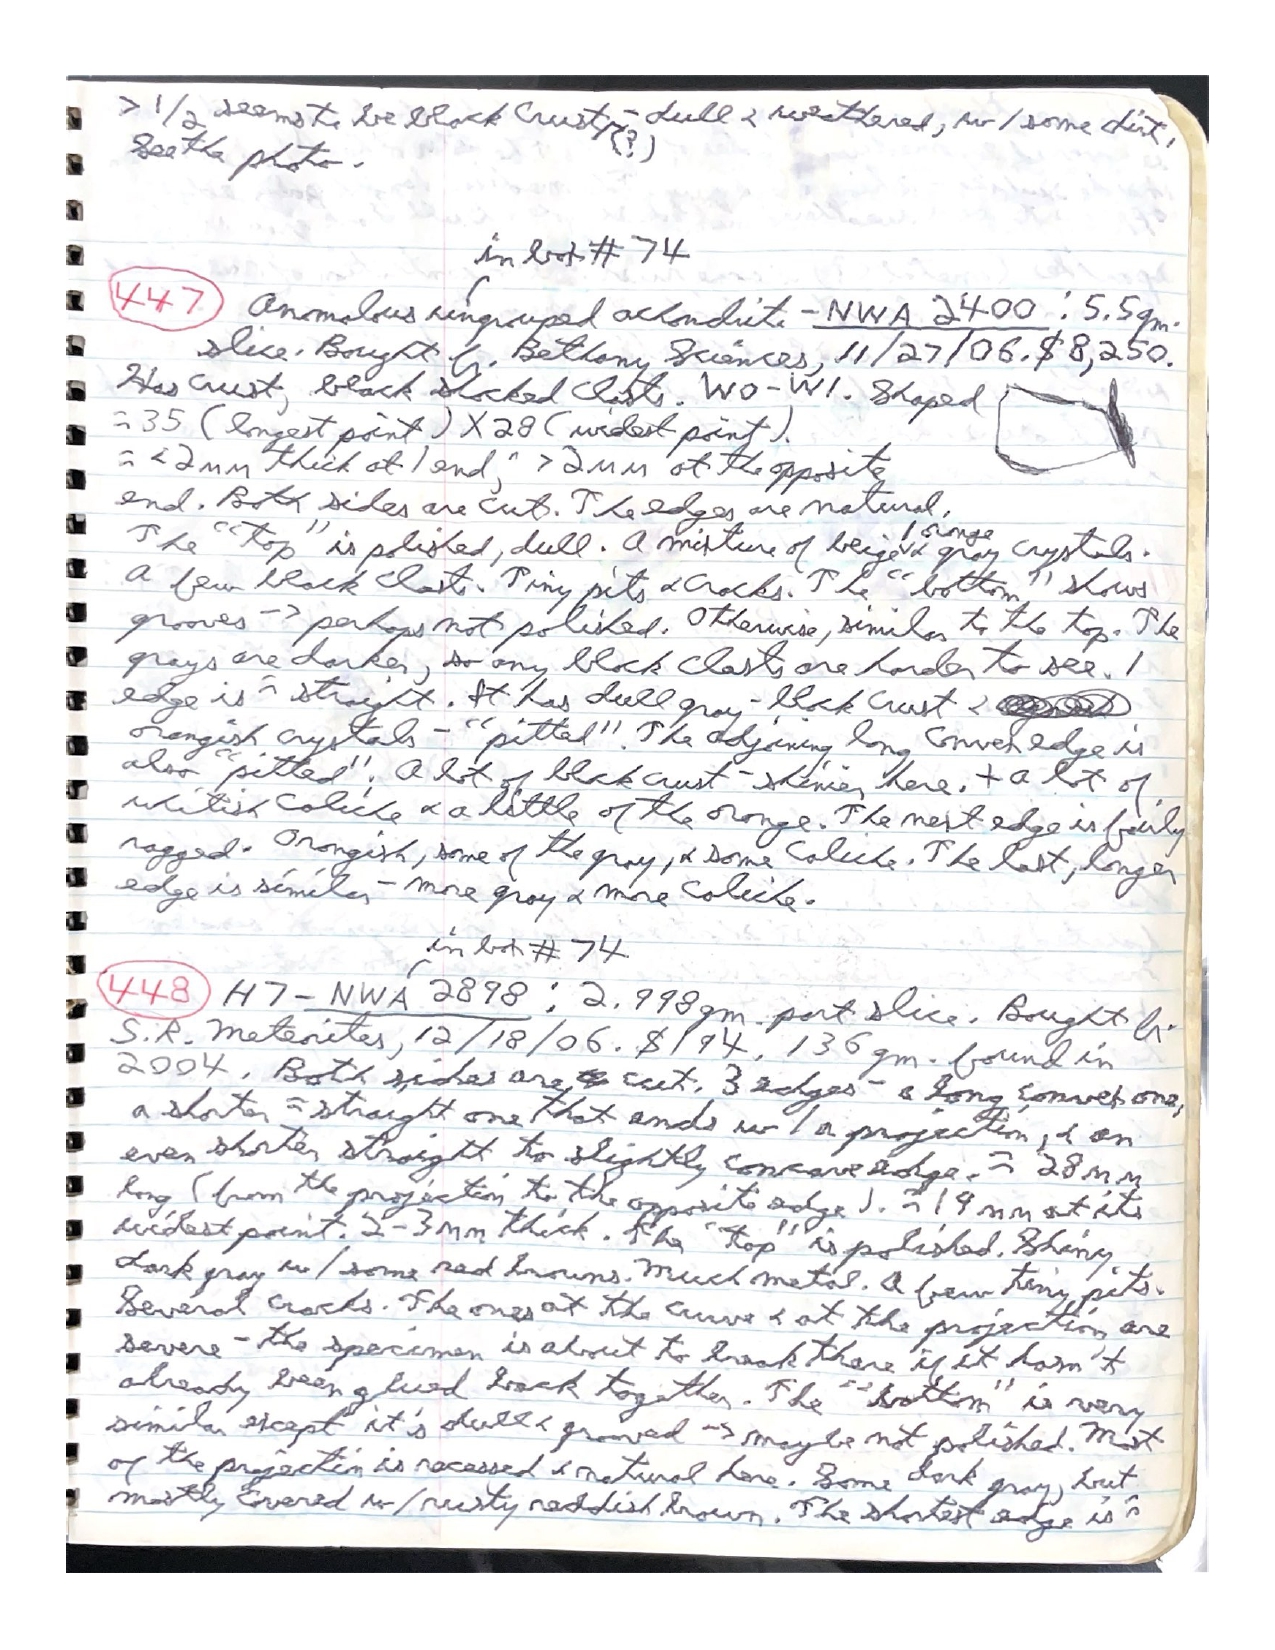 > 1/2 seems to be black crust (?) - dull & weathered, w/ some dirt.
See the photo.
in box # 74
447 Anomalous ungrouped achondrite - NWA 2400 : 5.5 gm.
slice. Bought fr. Bethany Sciences, 11/27/06. $8,250.
Has crust, black shocked clasts. W0-W1. Shaped
≈ 35 (longest point) X 28 (widest point).
≈ <2mm thick at 1 end, >2mm at the opposite
end. Both sides are cut. The edges are natural.
The "top" is polished, dull. A mixture of beige, orange & gray crystals.
A few black clasts. Tiny pits & cracks. The "bottom" shows
grooves -> perhaps not polished. Otherwise, similar to the top. The
grays are darker, so any black clasts are harder to see. 1
edge is ≈ straight. It has dull gray-black crust &
orangish crystals - "pitted". The adjoining long convex edge is
also "pitted". A lot of black crust - shinier here. + a lot of
whitish caliche & a little of the orange. The next edge is fairly
ragged. Orangish, some of the gray, & some caliche. The last, longer
edge is similar - more gray & more caliche.
in box # 74
448 H7 - NWA 2898 : 2.998 gm. part slice. Bought fr.
S.R. Meteorites, 12/18/06. $194. 136 gm. found in
2004. Both sides are cut. 3 edges - a long convex one,
a shorter ≈ straight one that ends w/ a projection, & an
even shorter straight to slightly concave edge. ≈ 28mm
long (from the projection to the opposite edge). ≈ 19mm at its
widest point. 2-3mm thick. The "top" is polished. Shiny
dark gray w/ some red browns. Much metal. A few tiny pits.
Several cracks. The ones at the curve & at the projection are
severe - the specimen is about to break there if it hasn't
already been glued back together. The "bottom" is very
similar except it's dull & grooved -> maybe not polished. Most
of the projection is recessed & natural here. Some dark gray, but
mostly covered w/ rusty reddish brown. The shortest edge is ≈